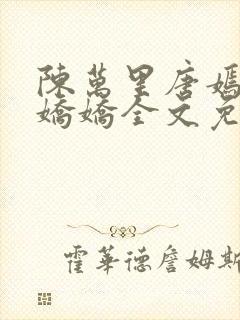 陳萬里唐嫣
嬌嬌全文免
霍華德詹姆斯